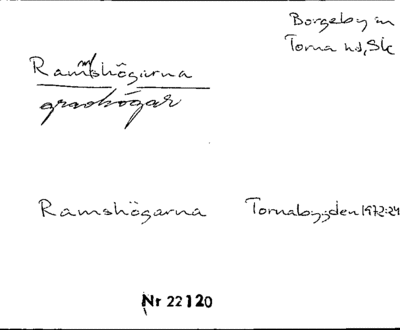 Borgeby sn
Torna hd, Sk
Ramshögarna
gravhögar
Ramshögarna Tornabygden 1972:24
Nr 22120